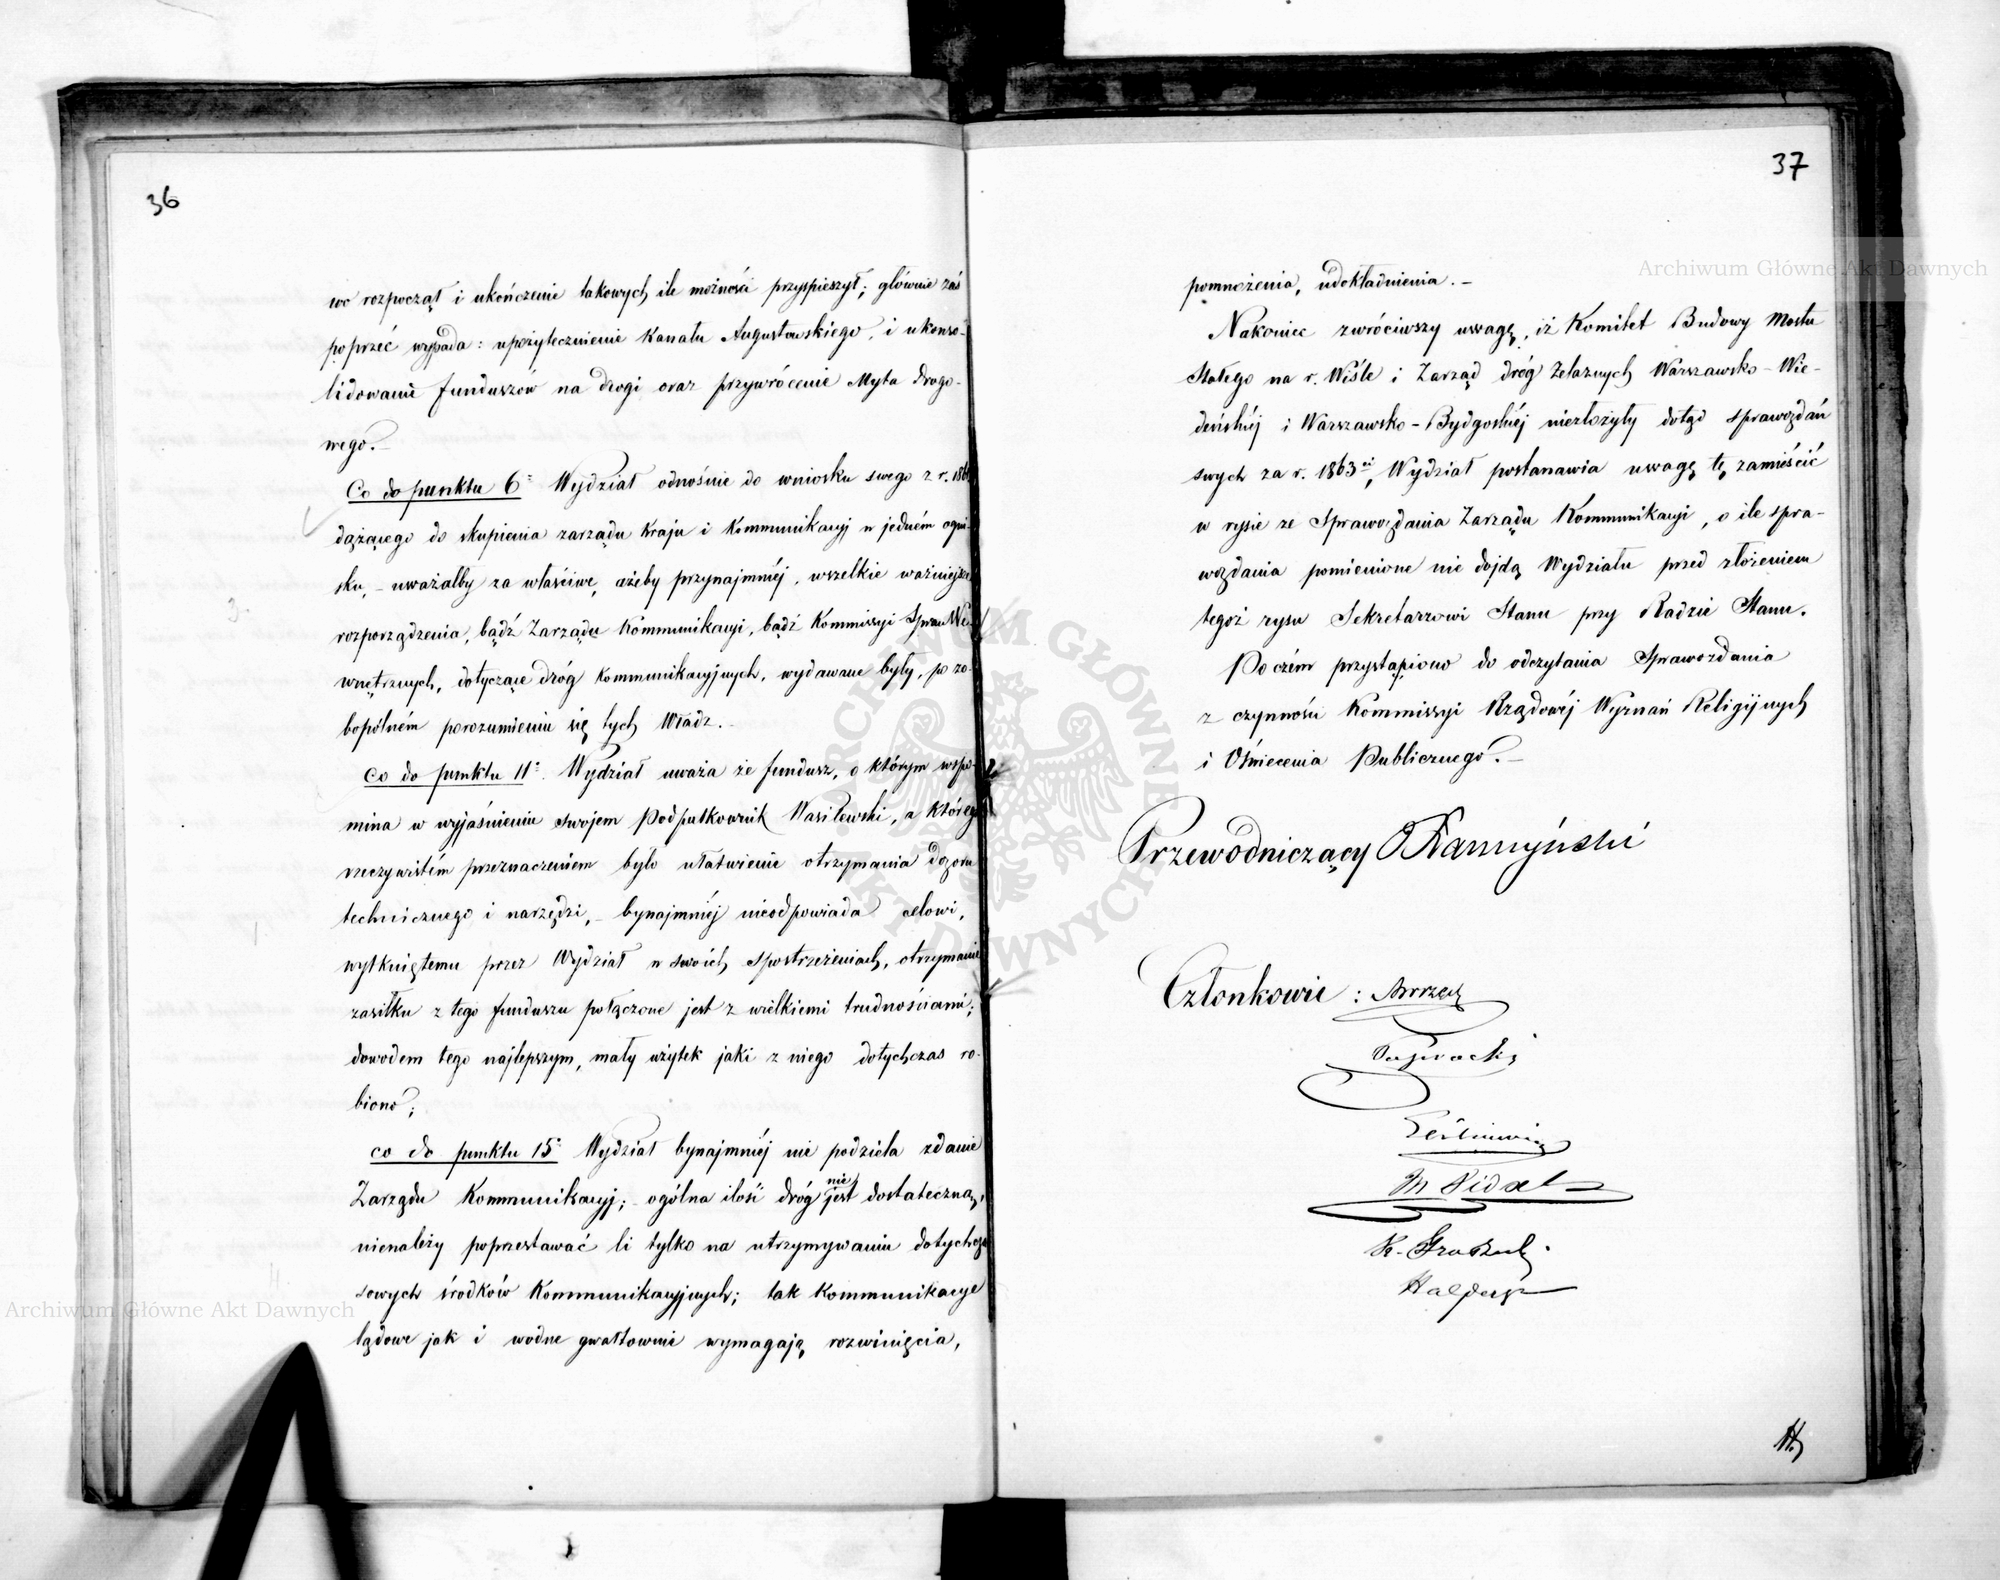 36
wo rozpoczął i ukończenie takowych ile możności przyspieszył; głównie zaś
poprzeć wypada: upożytecznienie Kanału Augustowskiego, i ukonso-
lidowanie funduszów na drogi oraz przywrócenie Myta drogo-
wego.—
Co do punktu 6º Wydział odnośnie do wniosku swego z r. 186
dążącego do skupienia zarządu Kraju i Kommunikacyj w jedném ogni-
sku, – uważałby za właściwe, ażeby przynajmniéj, wszelkie ważniejsze
rozporządzenia, bądź Zarządu Kommunikacyi, bądź Kommissyi Spraw We-
wnętrznych, dotyczące dróg Kommunikacyjnych, wydawane były, po zo-
bopólném porozumieniu się tych Władz.—
co do punktu 11º. Wydział uważa że fundusz, o którym wspo-
mina w wyjaśnieniu swojem Podpułkownik Wasilewski, a którego
rzeczywistém przeznaczeniem było ułatwienie otrzymania dozoru
technicznego i narzędzi, – bynajmniéj nieodpowiada celowi,
wytkniętemu przez Wydział w swoich spostrzeżeniach, otrzymanie
zasiłku z tego funduszu połączone jest z wielkiemi trudnościami;
dowodem tego najlepszym, mały użytek jaki z niego dotychczas ro-
biono;
co do punktu 15º Wydział bynajmniéj nie podziela zdanie
Zarządu Kommunikacyj; – ogólna ilość dróg nie jest dostateczną,
nienależy poprzestawać li tylko na utrzymywaniu dotychcza
sowych środków Kommunikacyjnych; tak Kommunikacye
lądowe jak i wodne gwałtownie wymagają rozwinięcia,
37
pomnożenia, udokładnienia.—
Nakoniec zwróciwszy uwagę, iż Komitet Budowy Mostu
Stałego na r. Wiśle i Zarząd dróg Żelaznych Warszawsko-Wie-
deńskiéj i Warszawsko-Bydgoskiéj niezłożyły dotąd sprawozdań
swych za r. 1863ci, Wydział postanawia uwagę tę zamieścić
w rysie ze Sprawozdania Zarządu Kommunikacyi, o ile spra-
wozdania pomienione nie dojdą Wydziału przed złożeniem
tegoż rysu Sekretarzowi Stanu przy Radzie Stanu.
Poczém przystąpiono do odczytania Sprawozdania
z czynności Kommissyi Rządowéj Wyznań Religijnych
i Oświecenia Publicznego.—
Przewodniczący
Członkowie:
Archiwum Główne Akt Dawnych
Archiwum Główne Akt Dawnych
ARCHIWUM GŁÓWNE AKT DAWNYCH